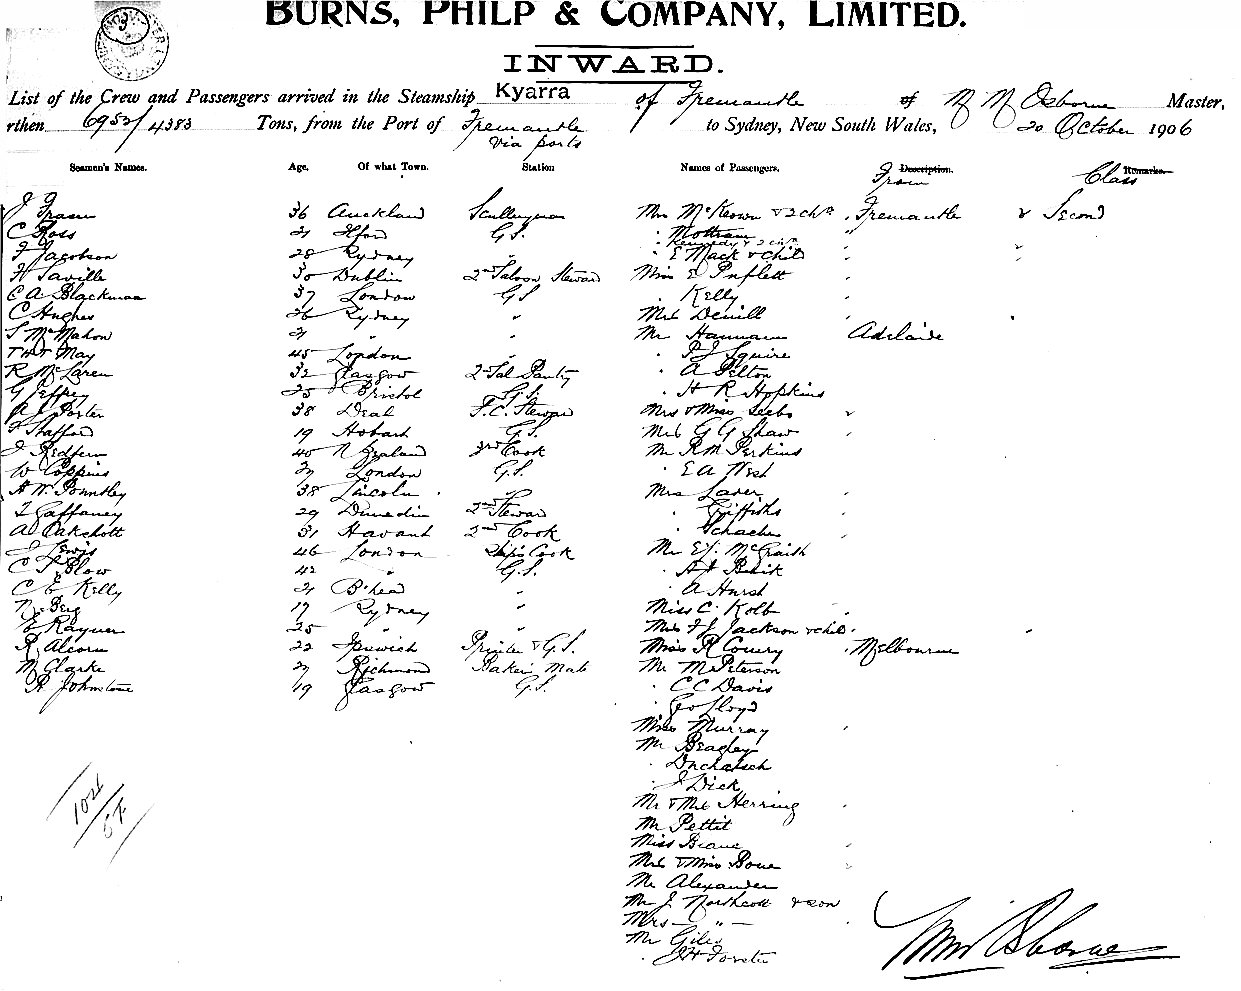 BURNS, PHILP & COMPANY, LIMITED.
INWARD.
List of the Crew and Passengers arrived in the Steamship Kyarra of Fremantle of Osborne Master,
rthen 6952/4383 Tons, from the Port of Fremantle to Sydney, New South Wales, 20 October 1906
via ports
Seamen's Names. Age. Of what Town. Station Names of Passengers. Description. Remarks.
From Class
J Fraser 36 Auckland Scullyman Mrs McKeown & 2 chn " Fremantle Second
C Ross 21 Ilford G.S. " Mottram
" Kennedy & 2 chn
F Jacobson 28 Sydney " " E Mack & child
H Saville 30 Dublin 2nd Saloon Steward Miss E Puflett
C A Blackman 37 London G.S " Kelly
C Hughes 26 Sydney " Mrs Devill
S McMahon 21 " " Mr Hannam Adelaide
May 45 London " P J Squire
R McLaren 32 Glasgow 2 Sal Pantry " A Pelton
G Jeffrey 25 Bristol G.S. " H R Hopkins
A J Porter 38 Deal F.C. Steward Mrs & Miss Seebo
Stafford 19 Hobart G.S. Mrs G G Shaw
J Redfern 40 N Zealand 3rd Cook Mr R M Perkins
W Coppins London G.S. " E A West
A W. 38 Lincoln " Mrs Laver
Gaffaney 29 Dunedin 2nd Steward " Griffiths
A Oakshott 31 Havant 2nd Cook "
J Lewis 46 London Ships Cook Mr E J. McGraith
Blow 42 " G.S. "
C E Kelly 21 B'head " " A Hurst
N Berg 19 Sydney " Miss C. Kolb
E Rayner 25 " " Mrs F J Jackson & child
R Alcorn 22 Ipswich Printer & G.S. Miss R Cowry " Melbourne
M Clarke Richmond Baker's Mate Mr M Peterson
A Johnstone 19 Glasgow G.S. " C C Davis
" Geo Lloyd
Miss Murray
Mr Beagley
"
" J Dick
Mr & Mrs Herring
Mr Pettit
Miss Deane
Mrs & Miss Bone
Mr Alexander
Mr J. Northcott & son
Mrs — " —
Mr Giles
" J H Forster
102